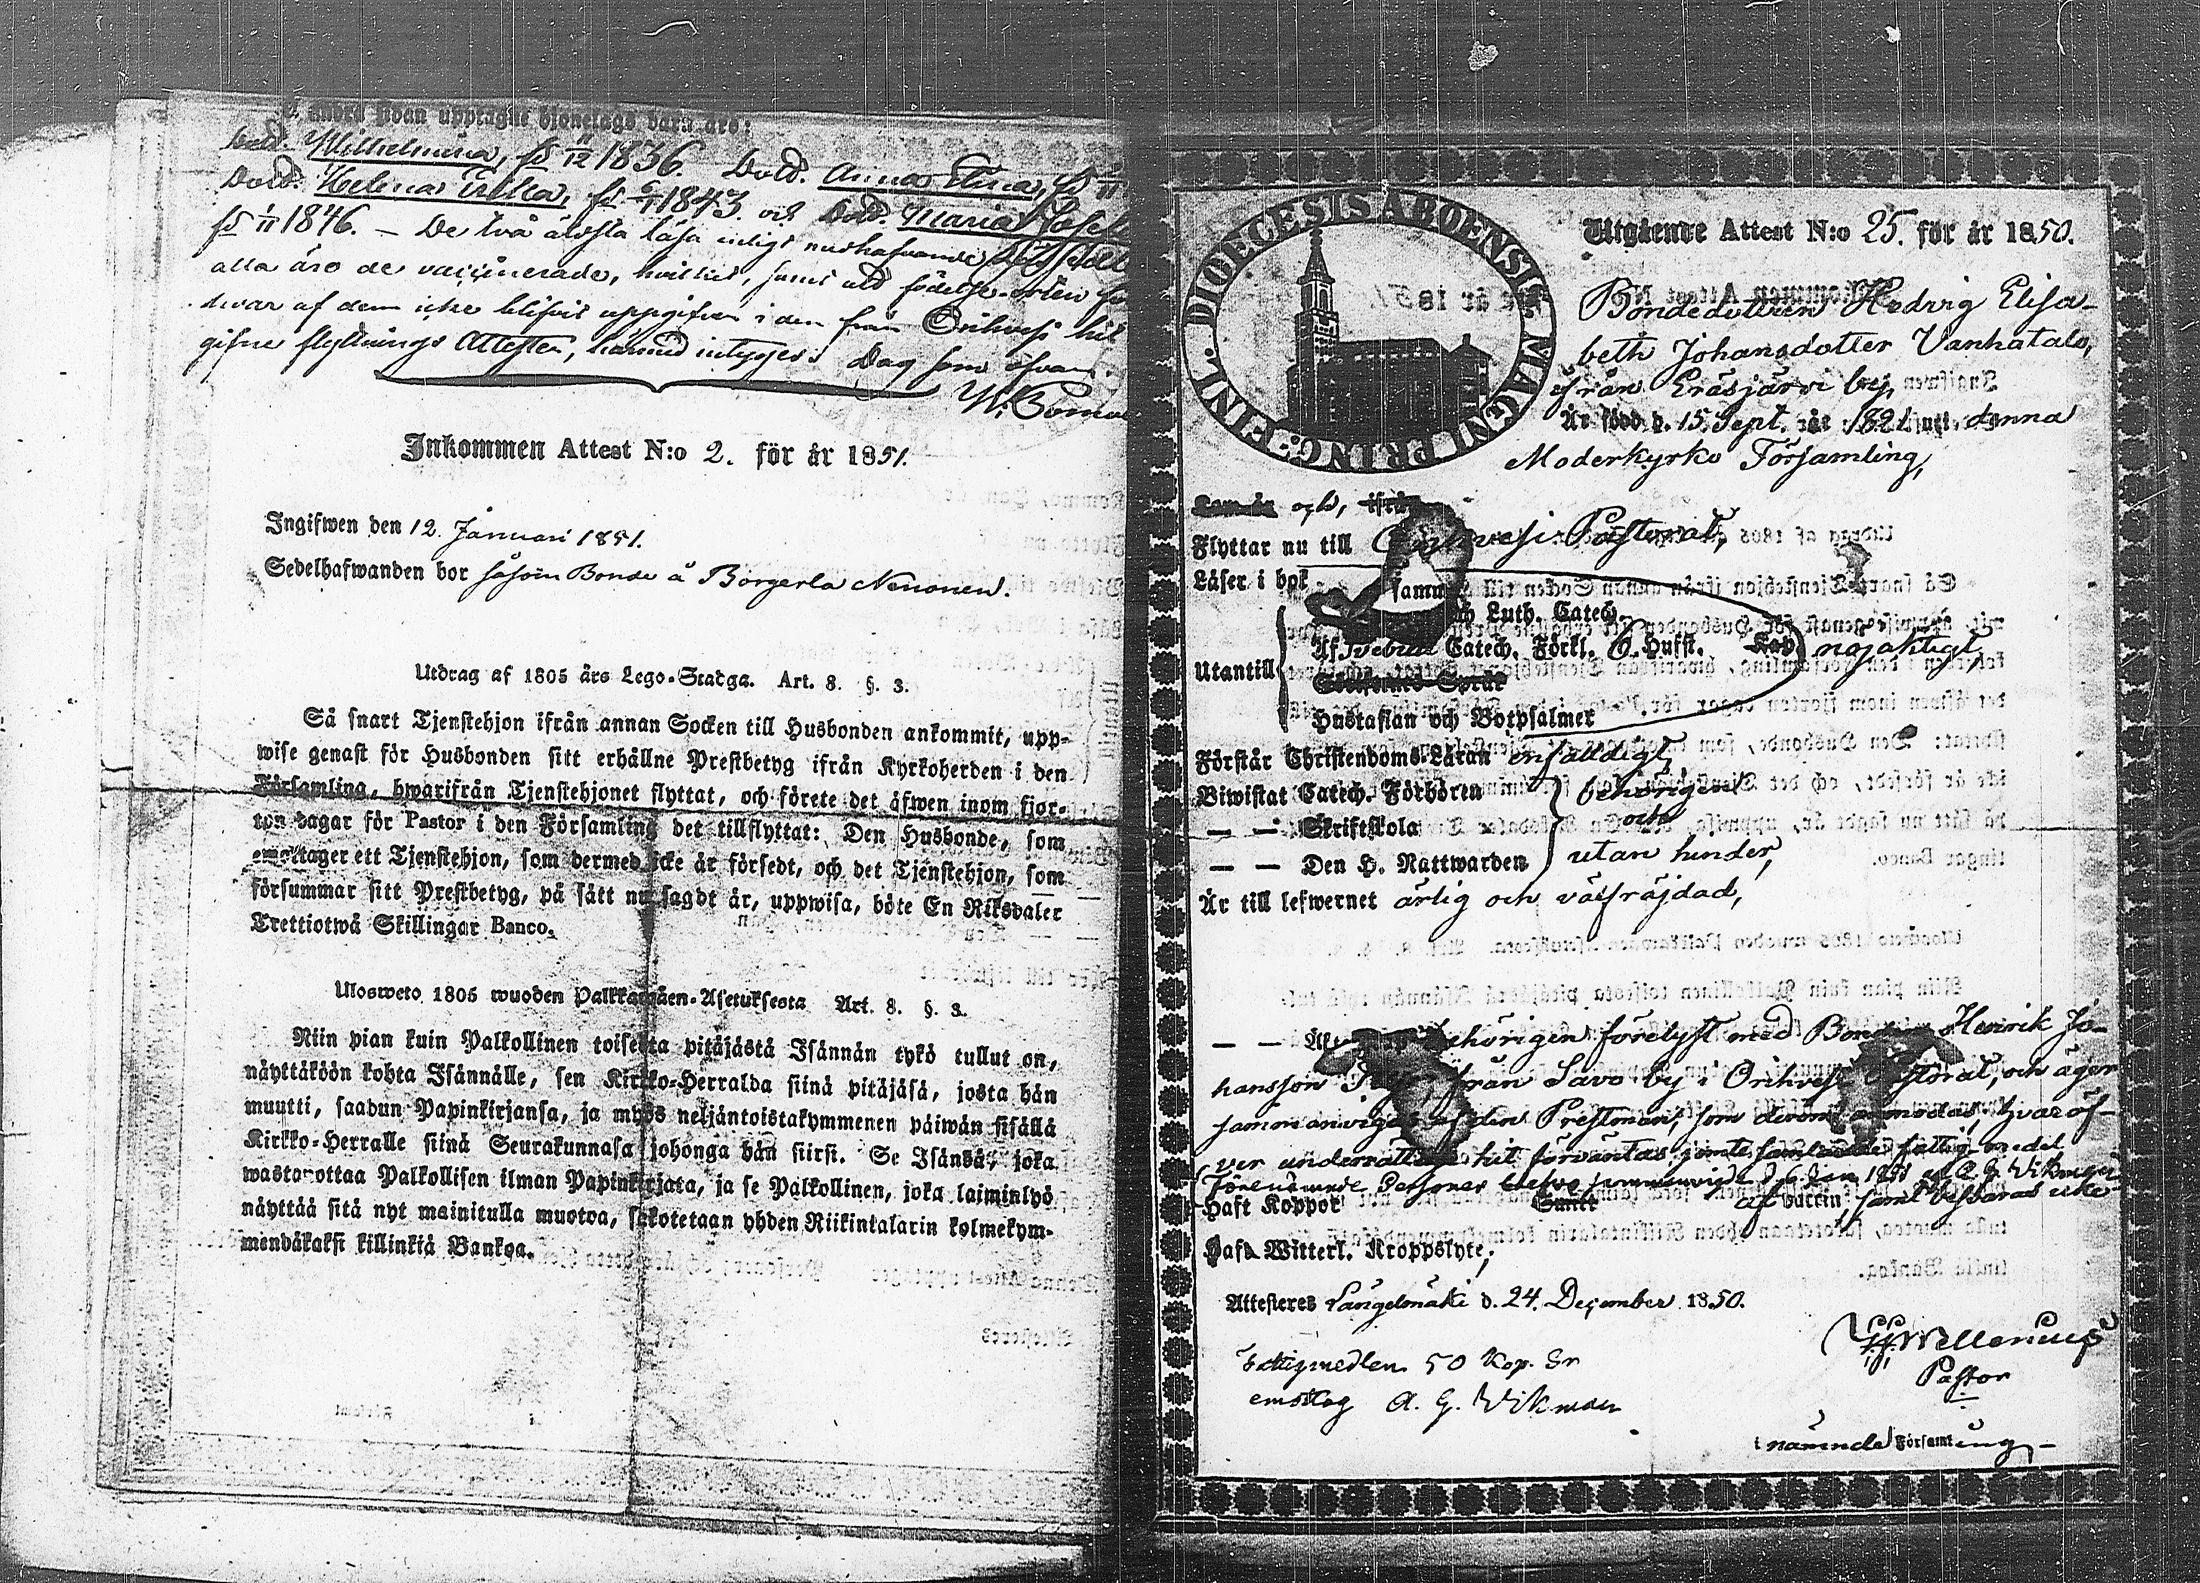 å andra sidan upptagne hjonelags barn äro:
Dott. Wilhelmina, fd 11/12 1836. Dott. Anna Stina, fd
Dott. Helena Ulla, fd 6/1 1843. och Dott. Maria Josef
fd 1/11 1846. – De två äldsta läsa enligt
alla äro de vaccinerade, hvilket, samt att födelse-orten
hvar af dem icke blifvit uppgifven i den från Orihvesi hit
gifne flyttnings Attesten, härmed intygas: Dag som ofvan.
Inkommen Attest N:o 2. för år 1851.
Ingifwen den 12. Januari 1851.
Sedelhafwanden bor såsom Bonde å Börgerla Nenonen.
Utdrag af 1805 års Lego-Stadga. Art. 8. §. 3.
Så snart Tjenstehjon ifrån annan Socken till Husbonden ankommit, upp-
wise genast för Husbonden sitt erhållne Prestbetyg ifrån Kyrkoherden i den
Församling, hwarifrån Tjenstehjonet flyttat, och förete det äfwen inom fjor-
ton dagar för Pastor i den Församling det tillflyttat: Den Husbonde, som
emottager ett Tjenstehjon, som dermed icke är försedt, och det Tjenstehjon, som
försummar sitt Prestbetyg, på sätt nu sagdt är, uppwisa, böte En Riksdaler
Trettiotwå Skillingar Banco.
Ulosweto 1805 wuoden Palkkawäen-Asetuksesta Art. 8. §. 3.
Niin pian kuin Palkollinen toisesta pitäjästä Isännän tykö tullut on,
näyttäköön kohta Isännälle, sen Kirkko-Herralda siinä pitäjäsä, josta hän
muutti, saadun Papinkirjansa, ja myös neljäntoistakymmenen päiwän sisällä
Kirkko-Herralle siinä Seurakunnasa johonga hän siirsi. Se Isändä, joka
wastaanottaa Palkollisen ilman Papinkirjata, ja se Palkollinen, joka laiminlyö
näyttää sitä nyt mainitulla muotoa, sakotetaan yhden Riikintalarin kolmekym-
mendäkaksi killinkiä Bankoa.
DIOECESIS ABOENSIS MAGNI PRINC: FINL.
Utgående Attest N:o 25. för år 1850.
Bondedottren Hedvig Elisa-
beth Johansdotter Vanhatalo,
från Eräsjärvi by,
Är född d. 15. Sept. år 1821 uti denna
Moderkyrko Församling,
och,
Flyttar nu till Orihvesi Pastorat,
Läser i bok samma
och Luth. Catec.
Utantill Af Svebilii Catech. Förkl. 6. Hufst. nöjaktigt,
Hustaflan och Botpsalmer
Förstår Christendoms-Läran enfaldigt,
Biwistat Catech. Förhören behörigen
— — Skriftskola och
— — Den H. Nattwarden utan hinder,
Är till lefwernet ärlig och välfräjdad,
— — behörigen förelyst med Bonden Henrik Jo-
hansson från Savo by i Orihvesi Pastorat, och äger
sammanvigas af den Prestman, som derom anmodas, hvaröf-
ver underrättelse hit förväntas jemte samlade fattig-medel
Förenämnde Personer blefvo sammanvigde d. 6. Jan 1851 af A. G. Wikman
Haft Koppor af vaccin, samt besväras icke
Haft Witterl. Kroppslyte;
Attesteres Längelmäki d. 24. December 1850.
Wellenius
Pastor
Fattigmedlen 50 Kop. Sr
emottog A. G. Wikman
i nämnde Församling